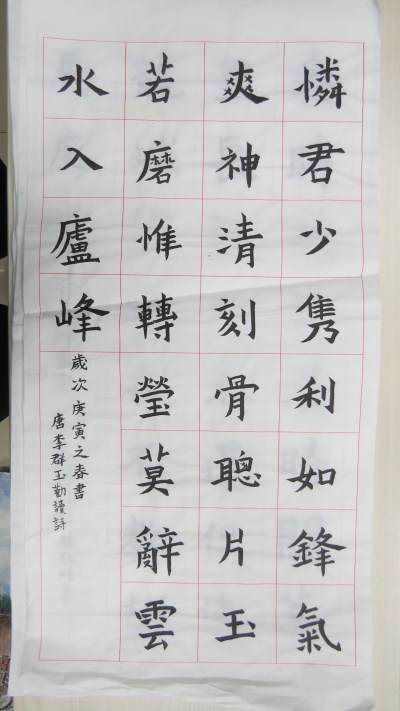 憐君少雋利如鋒氣
爽神清刻骨聰片玉
若磨惟轉瑩莫辭雲
水入廬峰
歲次庚寅之春書
唐李群玉勸讀詩